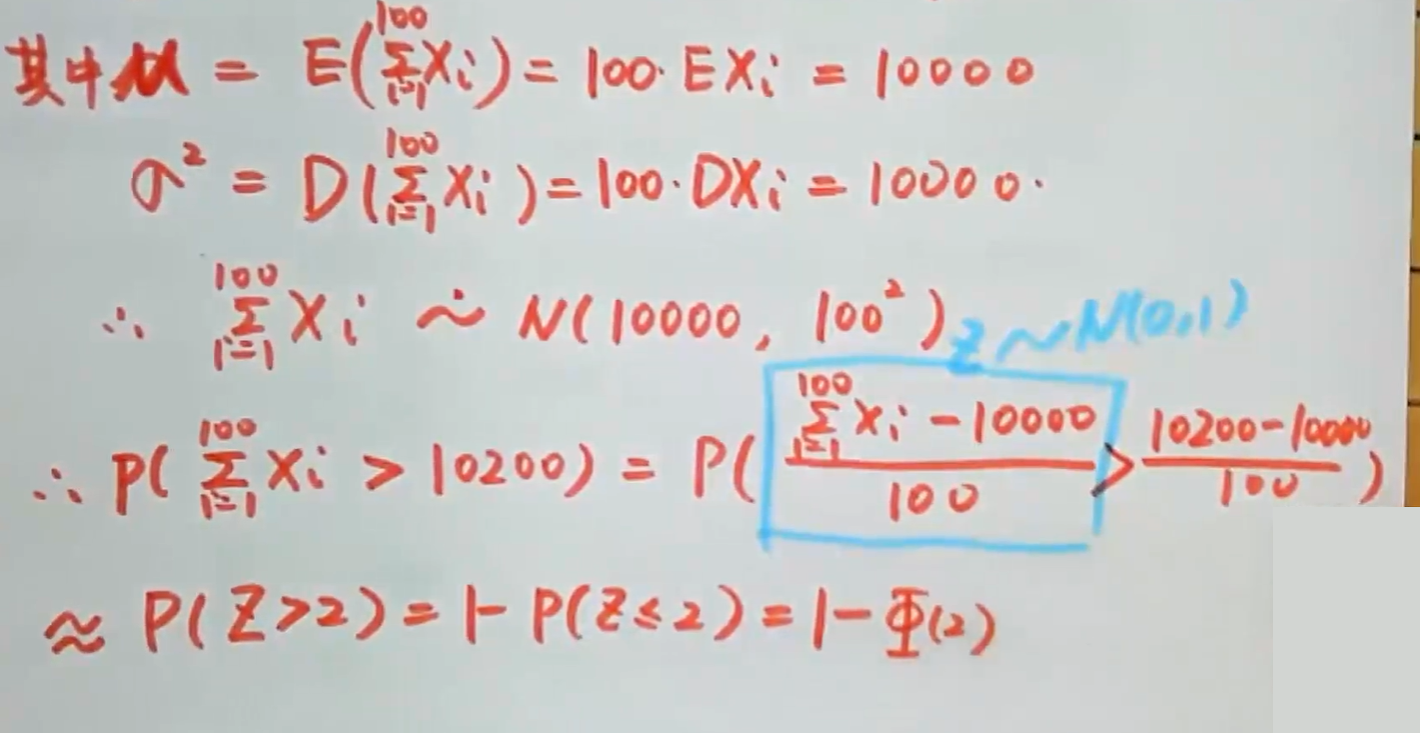 其中μ = E(∑_{i=1}^{100} Xi) = 100·EXi = 10000
σ² = D(∑_{i=1}^{100} Xi) = 100·DXi = 10000.
∴ ∑_{i=1}^{100} Xi ∼̇ N(10000, 100²) Z ~ N(0,1)
∴ P(∑_{i=1}^{100} Xi > 10200) = P( (∑_{i=1}^{100} Xi − 10000)/100 > (10200−10000)/100 )
≈ P(Z>2) = 1− P(Z≤2) = 1− Φ(2)